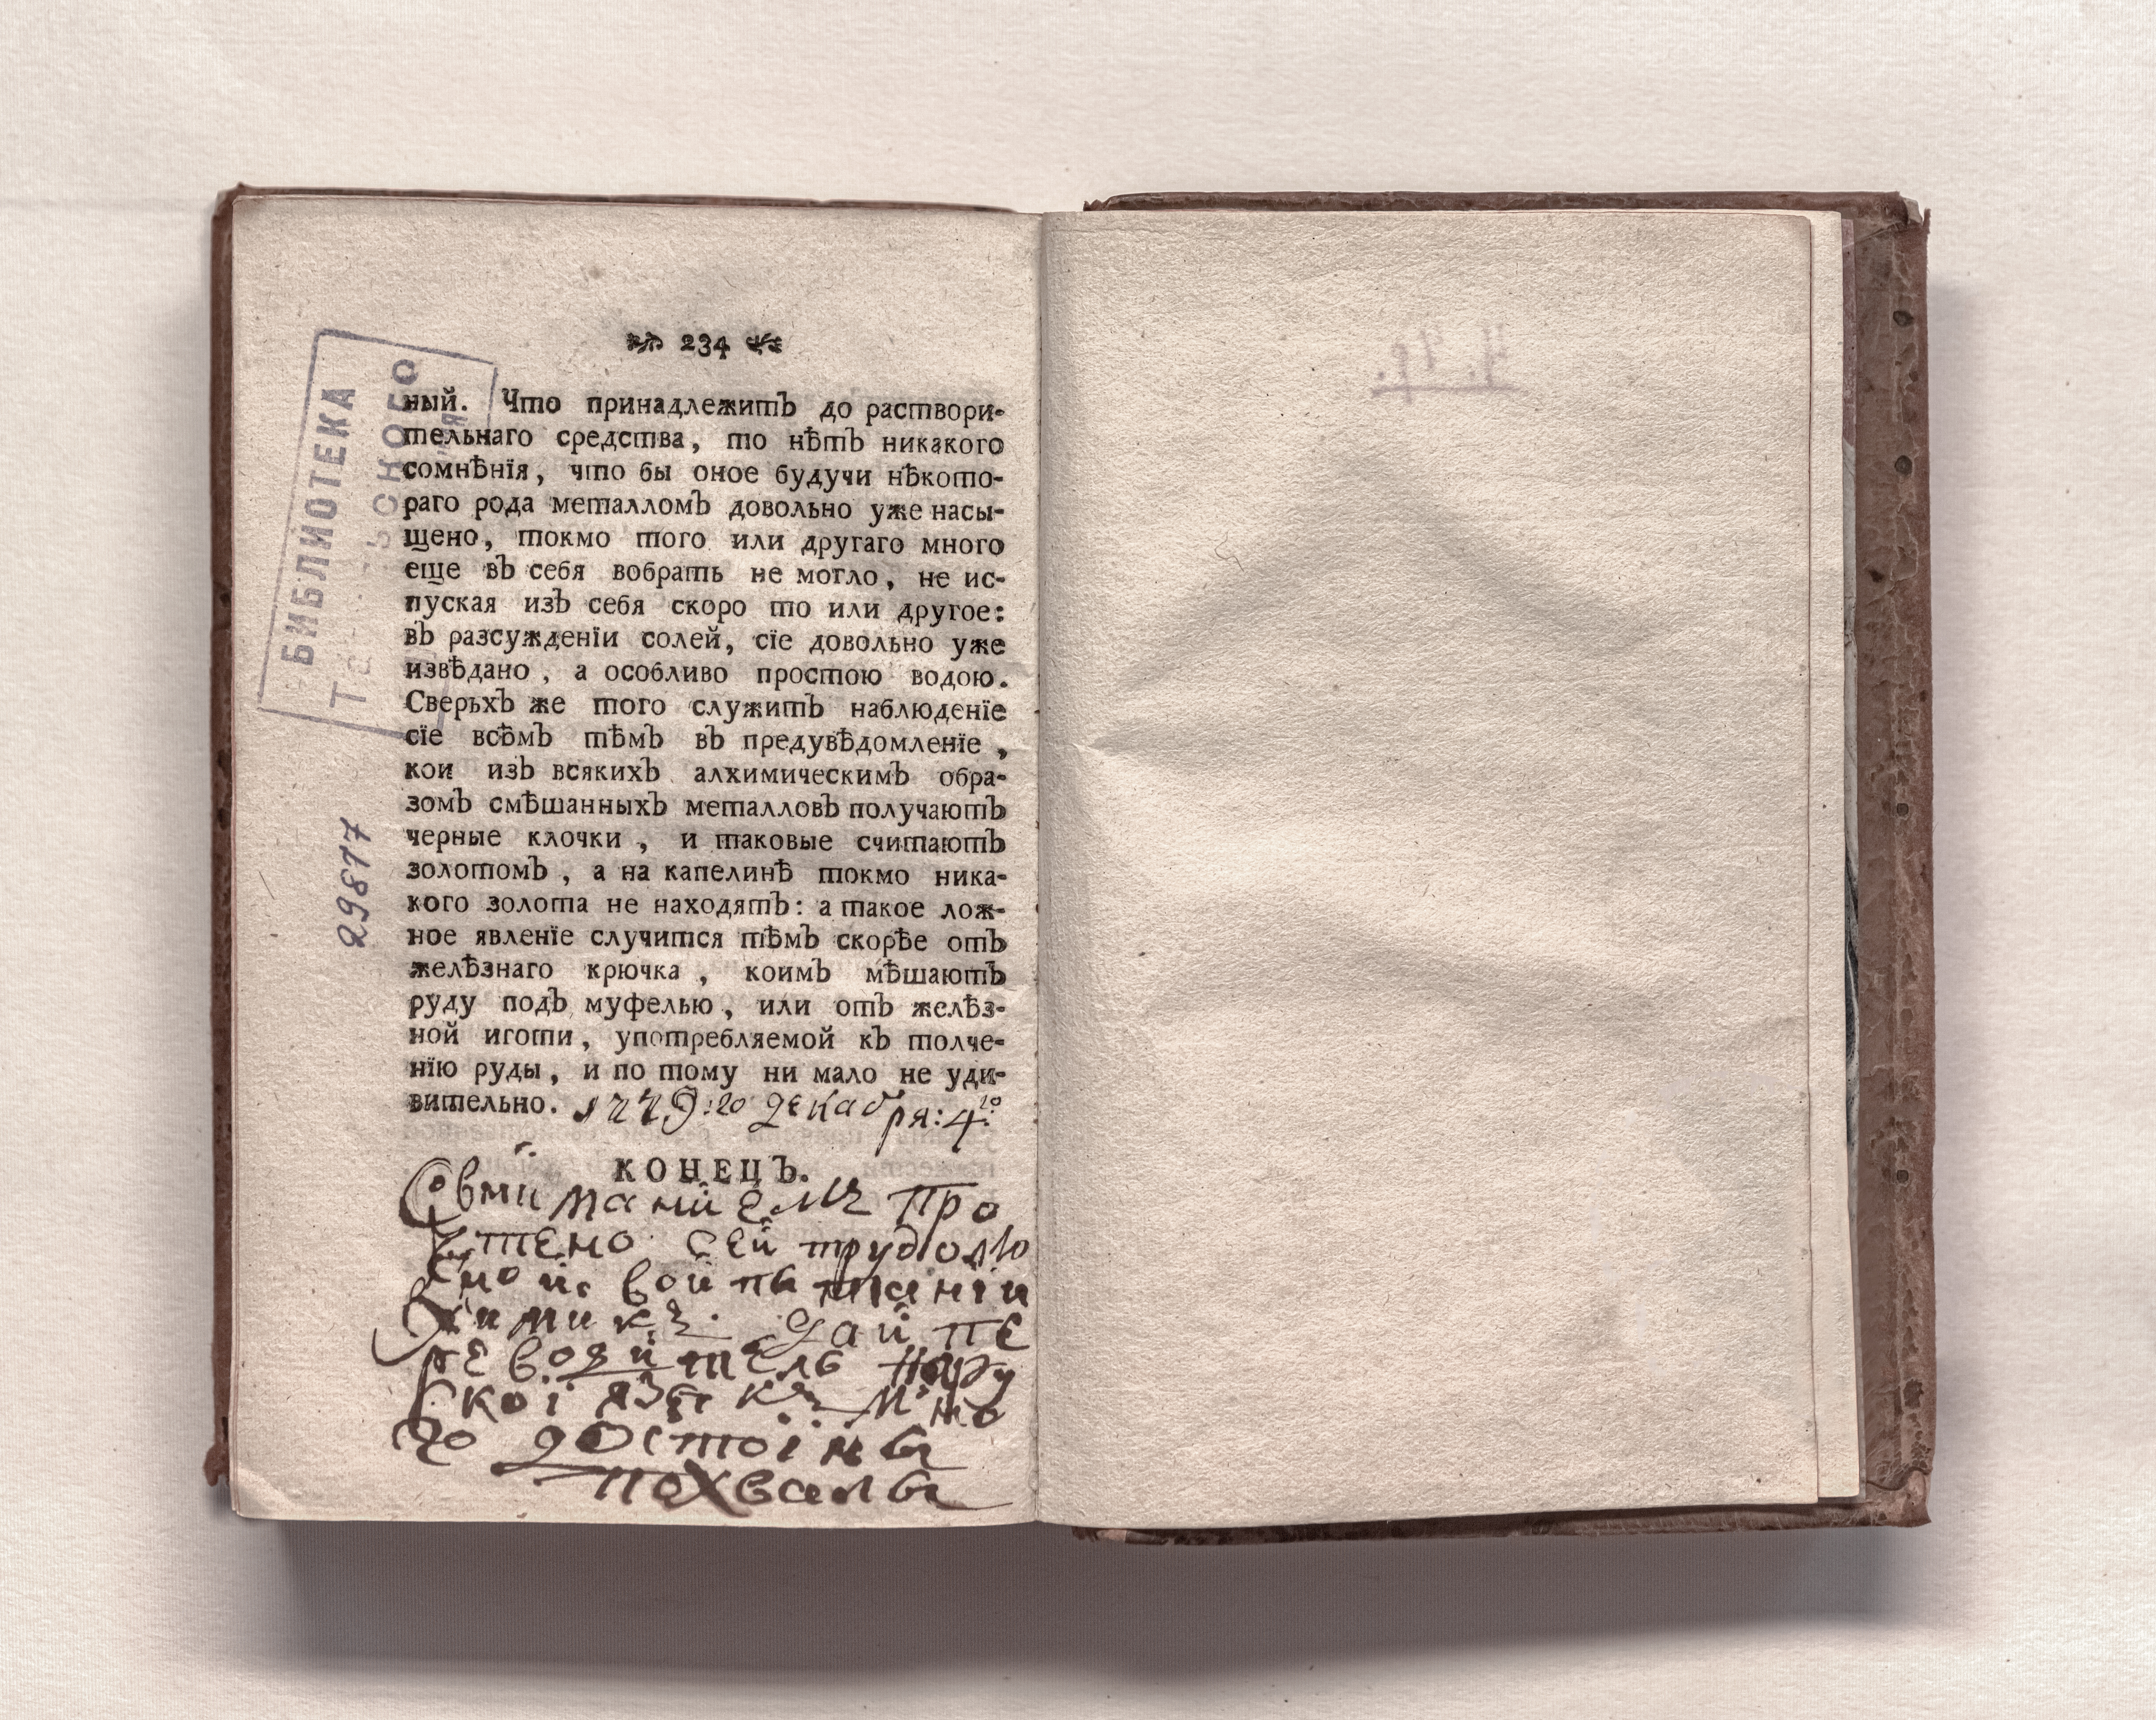 234
ный. Что принадлежитъ до раствори-
тельнаго средства, то нѣтъ никакого
сомнѣнїя, что бы оное будучи нѣкото-
раго рода металломъ довольно уже насы-
щено, токмо того или другаго много
еще въ себя вобрать не могло, не ис-
пуская изъ себя скоро то или другое:
въ разсужденїи солей, сїе довольно уже
извѣдано, а особливо простою водою.
Сверьхъ же того служитъ наблюденїе
сїе всѣмъ тѣмъ въ предувѣдомленїе,
кои изъ всякихъ алхимическимъ обра-
зомъ смѣшанныхъ металловъ получаютъ
черные клочки, и таковые считаютъ
золотомъ, а на капелинѣ токмо ника-
кого золота не находятъ: а такое лож-
ное явленїе случится тѣмъ скорѣе отъ
желѣзнаго крючка, коимъ мѣшаютъ
руду подъ муфелью, или отъ желѣз-
ной иготи, употребляемой къ толче-
нїю руды, и по тому ни мало не уди-
вительно.
1779: го декабря: 4го
КОНЕЦЪ.
Совниманиемъ про
чтено сей трудолю
вой
химикъ. дай пе
реводитель
ской языкъ мно
го достоiны
похвалы
БИБЛИОТЕКА
29877